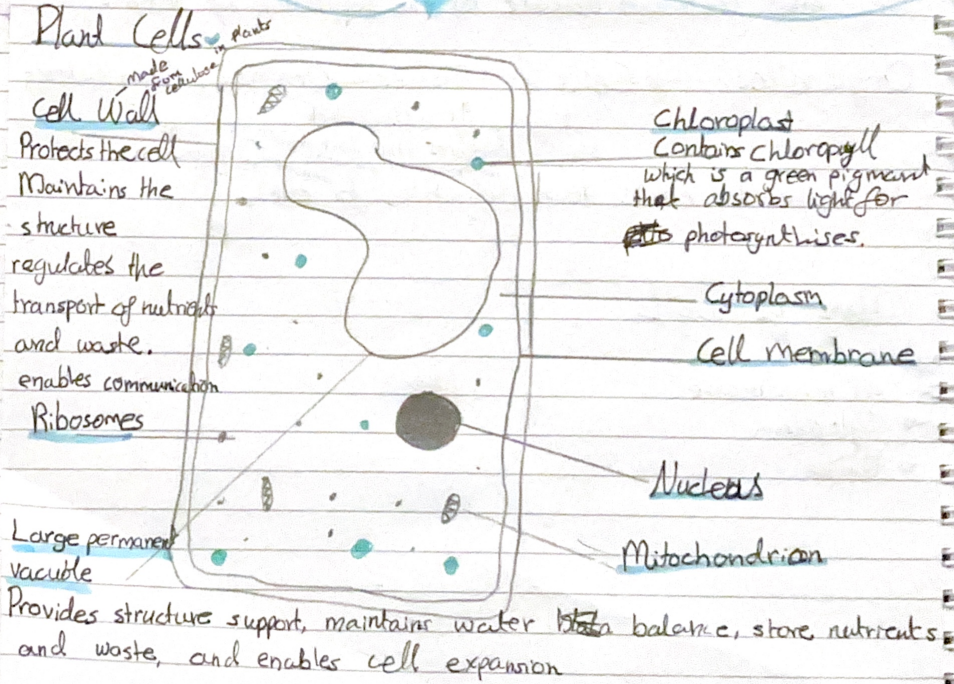 Plant Cells
made from cellulose in plants
Cell Wall
Protects the cell
Maintains the
structure
regulates the
transport of nutrients
and waste.
enables communication
Ribosomes
Large permanent
vacuole
Provides structure support, maintains water balance, store nutrients
and waste, and enables cell expansion
Chloroplast
Contains chloropyll
which is a green pigment
that absorbs light for
photosynthises.
Cytoplasm
Cell membrane
Nucleus
Mitochondrion